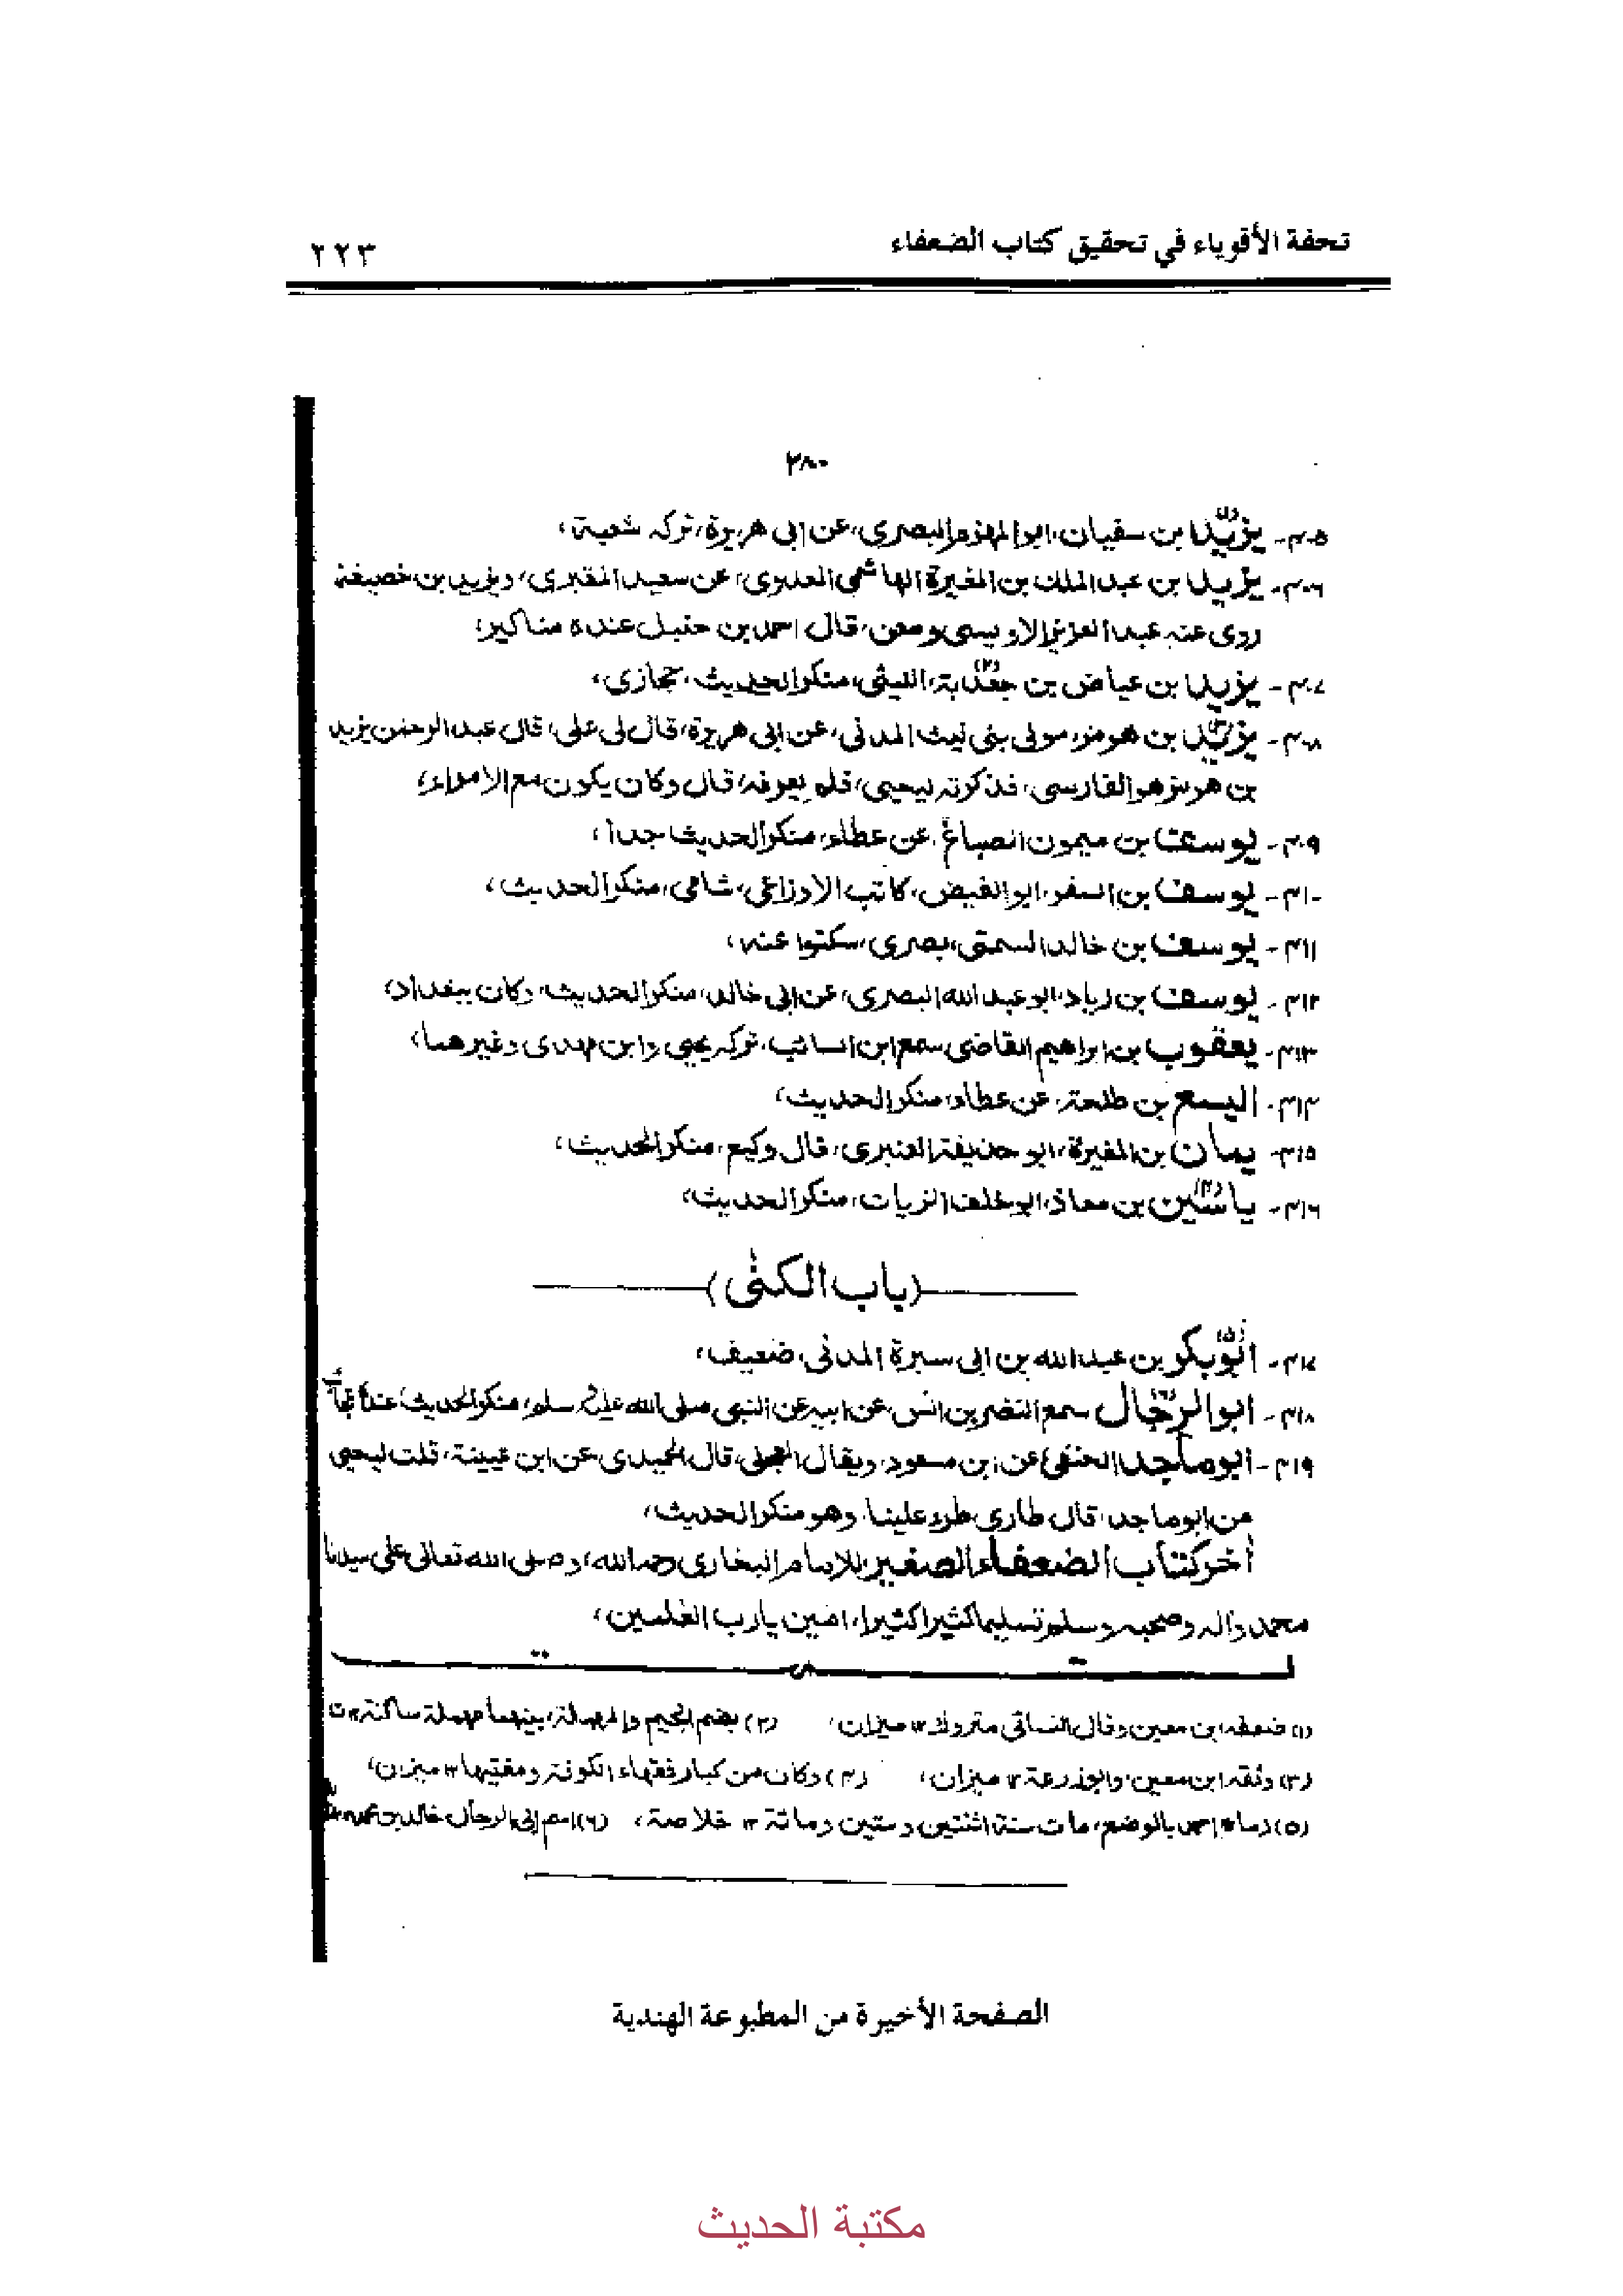 تحفة الأقوياء في تحقيق كتاب الضعفاء
٢٢٣
٢٨٠
٤٠٥- يزيد(١) بن سفيان، ابو المهزم البصرى، عن ابى هريرة، تركه شعبة،
٤٠٦- يزيد بن عبد الملك بن المغيرة الهاشمى المعلوى، عن سعيد المقبرى، ويزيد بن خصيفة
روى عنه عبد العزيز الاويسى ومعن، قال احمد بن حنبل عنده مناكير،
٤٠٧- يزيد بن عياض بن جعدبة(٢)، الليثى، منكر الحديث، حجازى،
٤٠٨- يزيد(٣) بن هرمز، مولى بنى ليث المدنى، عن ابى هريرة، قال لى على، قال عبد الرحمن يزيد
بن هرمز هو الفارسى، فذكرته ليحيى، فلم يعرفه، قال وكان يكون مع الامراء،
٤٠٩- يوسف بن ميمون الصباغ، عن عطاء، منكر الحديث جدا،
٤١٠- يوسف بن السفر، ابو الفيض، كاتب الاوزاعى، شامى، منكر الحديث،
٤١١- يوسف بن خالد السمتى، بصرى، سكتوا عنه،
٤١٢- يوسف بن زياد، ابو عبد الله البصرى، عن ابى خالد، منكر الحديث، وكان ببغداد،
٤١٣- يعقوب بن ابراهيم القاضى سمع ابن السائب، تركه يحيى وابن مهدى وغيرهما،
٤١٤- اليسع بن طلحة، عن عطاء، منكر الحديث،
٤١٥- يمان بن المغيرة، ابو حذيفة العنبرى، قال وكيع، منكر الحديث،
٤١٦- ياسين(٤) بن معاذ، ابو خلف الزيات، منكر الحديث،
(باب الكنى)
٤١٧- ابوبكر(٥) بن عبد الله بن ابى سبرة المدنى، ضعيف،
٤١٨- ابو الرجال(٦) سمع النضر بن انس، عن ابيه عن النبى صلى الله عليه وسلم، منكر الحديث، عنده
٤١٩- ابو ماجد الحنفى، عن ابن مسعود، ويقال العجلى، قال الحميدى عن ابن عيينة، قلت ليحيى
من ابو ماجد، قال طارى طرء علينا، وهو منكر الحديث،
أخر كتاب الضعفاء الصغير للامام البخارى رحمه الله، وصلى الله تعالى على سيدنا
محمد واله وصحبه وسلم تسليما كثيرا كثيرا، امين يارب العلمين،
(١) ضعفه ابن معين وقال النسائى متروك ١٢ ميزان، (٢) بضم الجيم والمهملة، بينهما مهملة ساكنة ١٢ ت
(٣) وثقه ابن معين وابوزرعة ١٢ ميزان، (٤) وكان من كبار فقهاء الكوفة ومفتيها ١٢ ميزان،
(٥) رماه احمد بالوضع، مات سنة اثنتين وستين ومائة ١٢ خلاصة، (٦) اسم ابى الرجال خالد بن محمد
الصفحة الأخيرة من المطبوعة الهندية
مكتبة الحديث